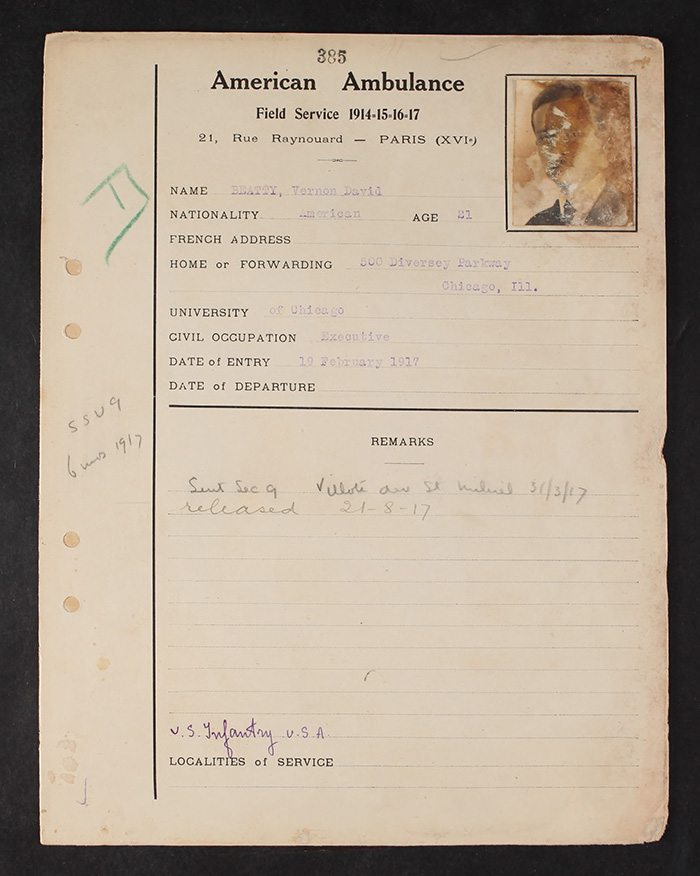 385
American Ambulance
Field Service 1914-15-16-17
21, Rue Raynouard — PARIS (XVIe)
NAME BEATTY, Vernon David
NATIONALITY American AGE 21
FRENCH ADDRESS
HOME or FORWARDING 500 Diversey Parkway
Chicago, Ill.
UNIVERSITY of Chicago
CIVIL OCCUPATION Executive
DATE of ENTRY 19 February 1917
DATE of DEPARTURE
SSU 9
6 mos 1917
REMARKS
Sent Sec 9 St 31/3/17
released 21-8-17
U.S. Infantry U.S.A.
LOCALITIES of SERVICE